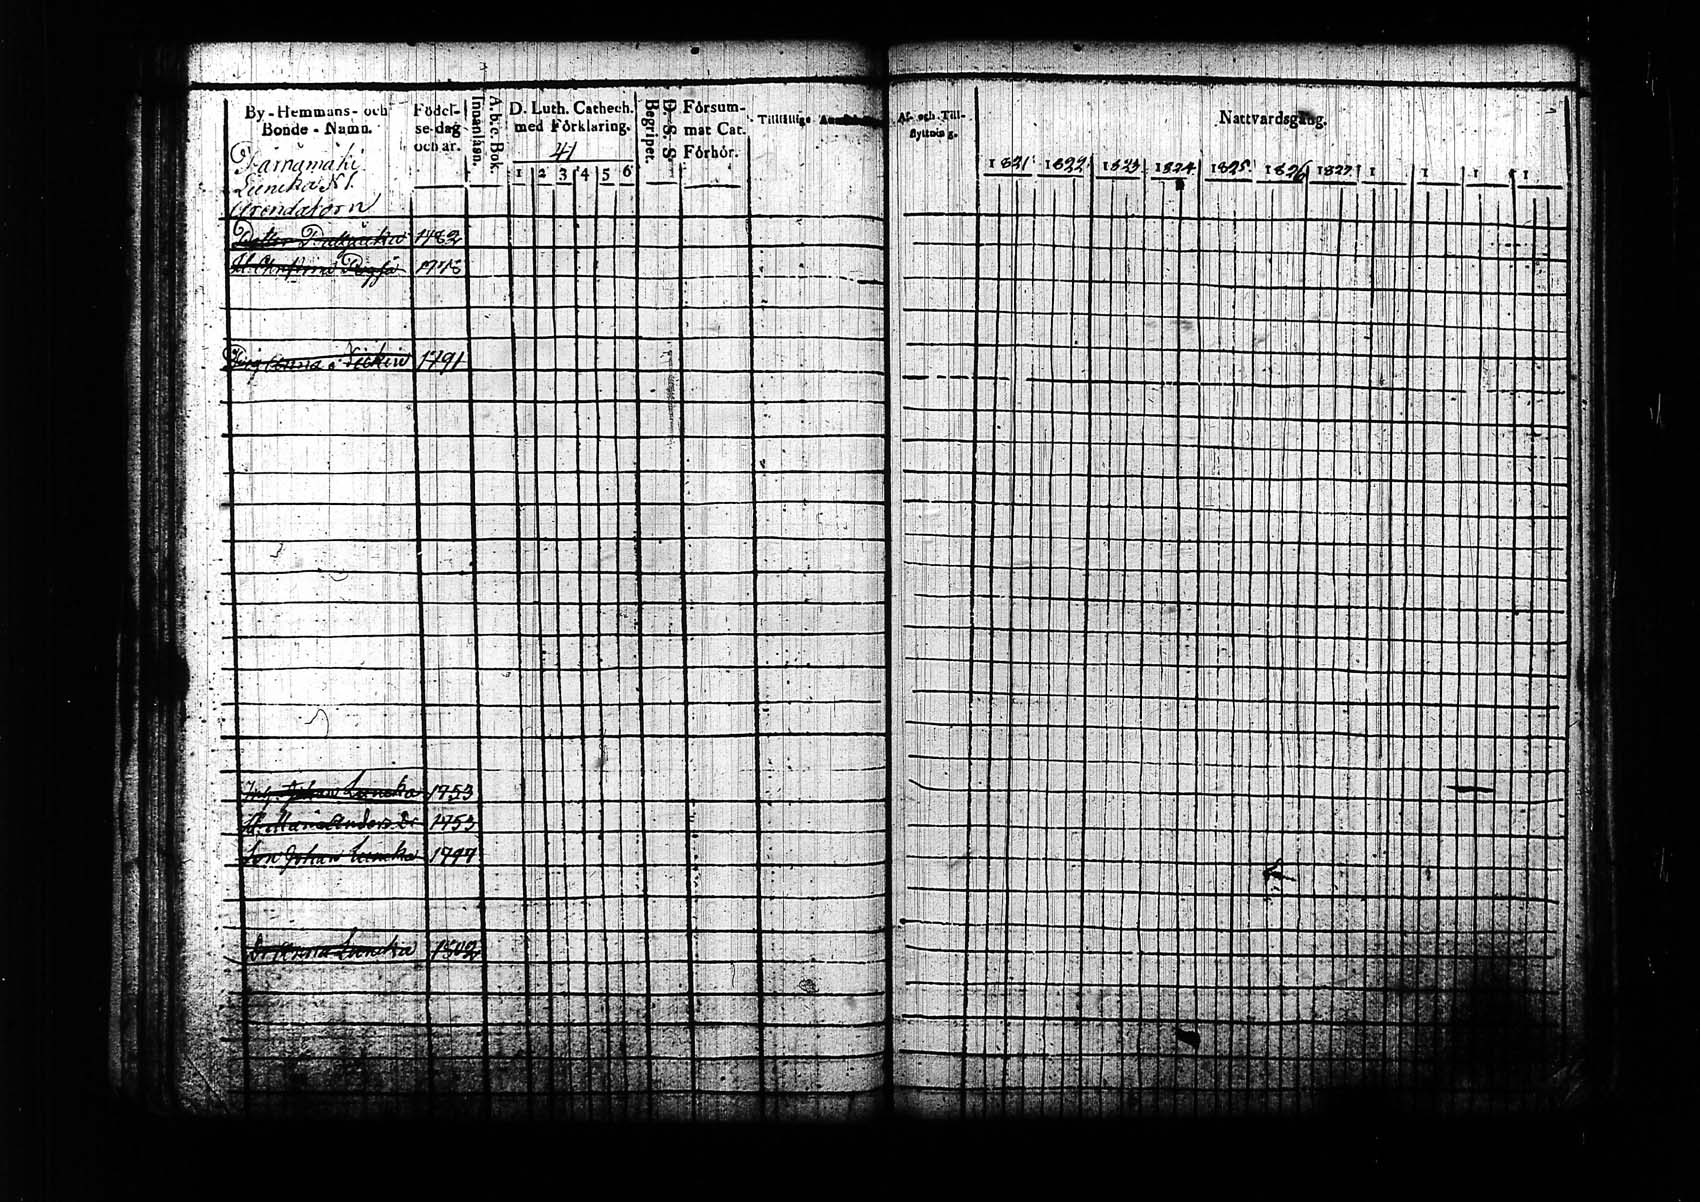 By-Hemmans- och
Bonde-Namn.
Födel-
se-dag
och år.
A. b. c. Bok.
Innanläsn.
D. Luth. Cathech.
med Förklaring.
41
1 2 3 4 5 6
D. S. S.
Begripet.
Försum-
mat Cat.
Förhör.
Tillfällige
Af- och Till-
flyttning.
Nattvardsgång.
1821 1822 1823 1824 1825 1826 1827 1 1 1 1
Luncka N 1.
Arendatorn
1782
H. Christina 1778
Anna 1791
Johan Luncka 1753
H. Maria Anders. Dr 1753
Son Johan Luncka 1797
Dr Anna Luncka 1802